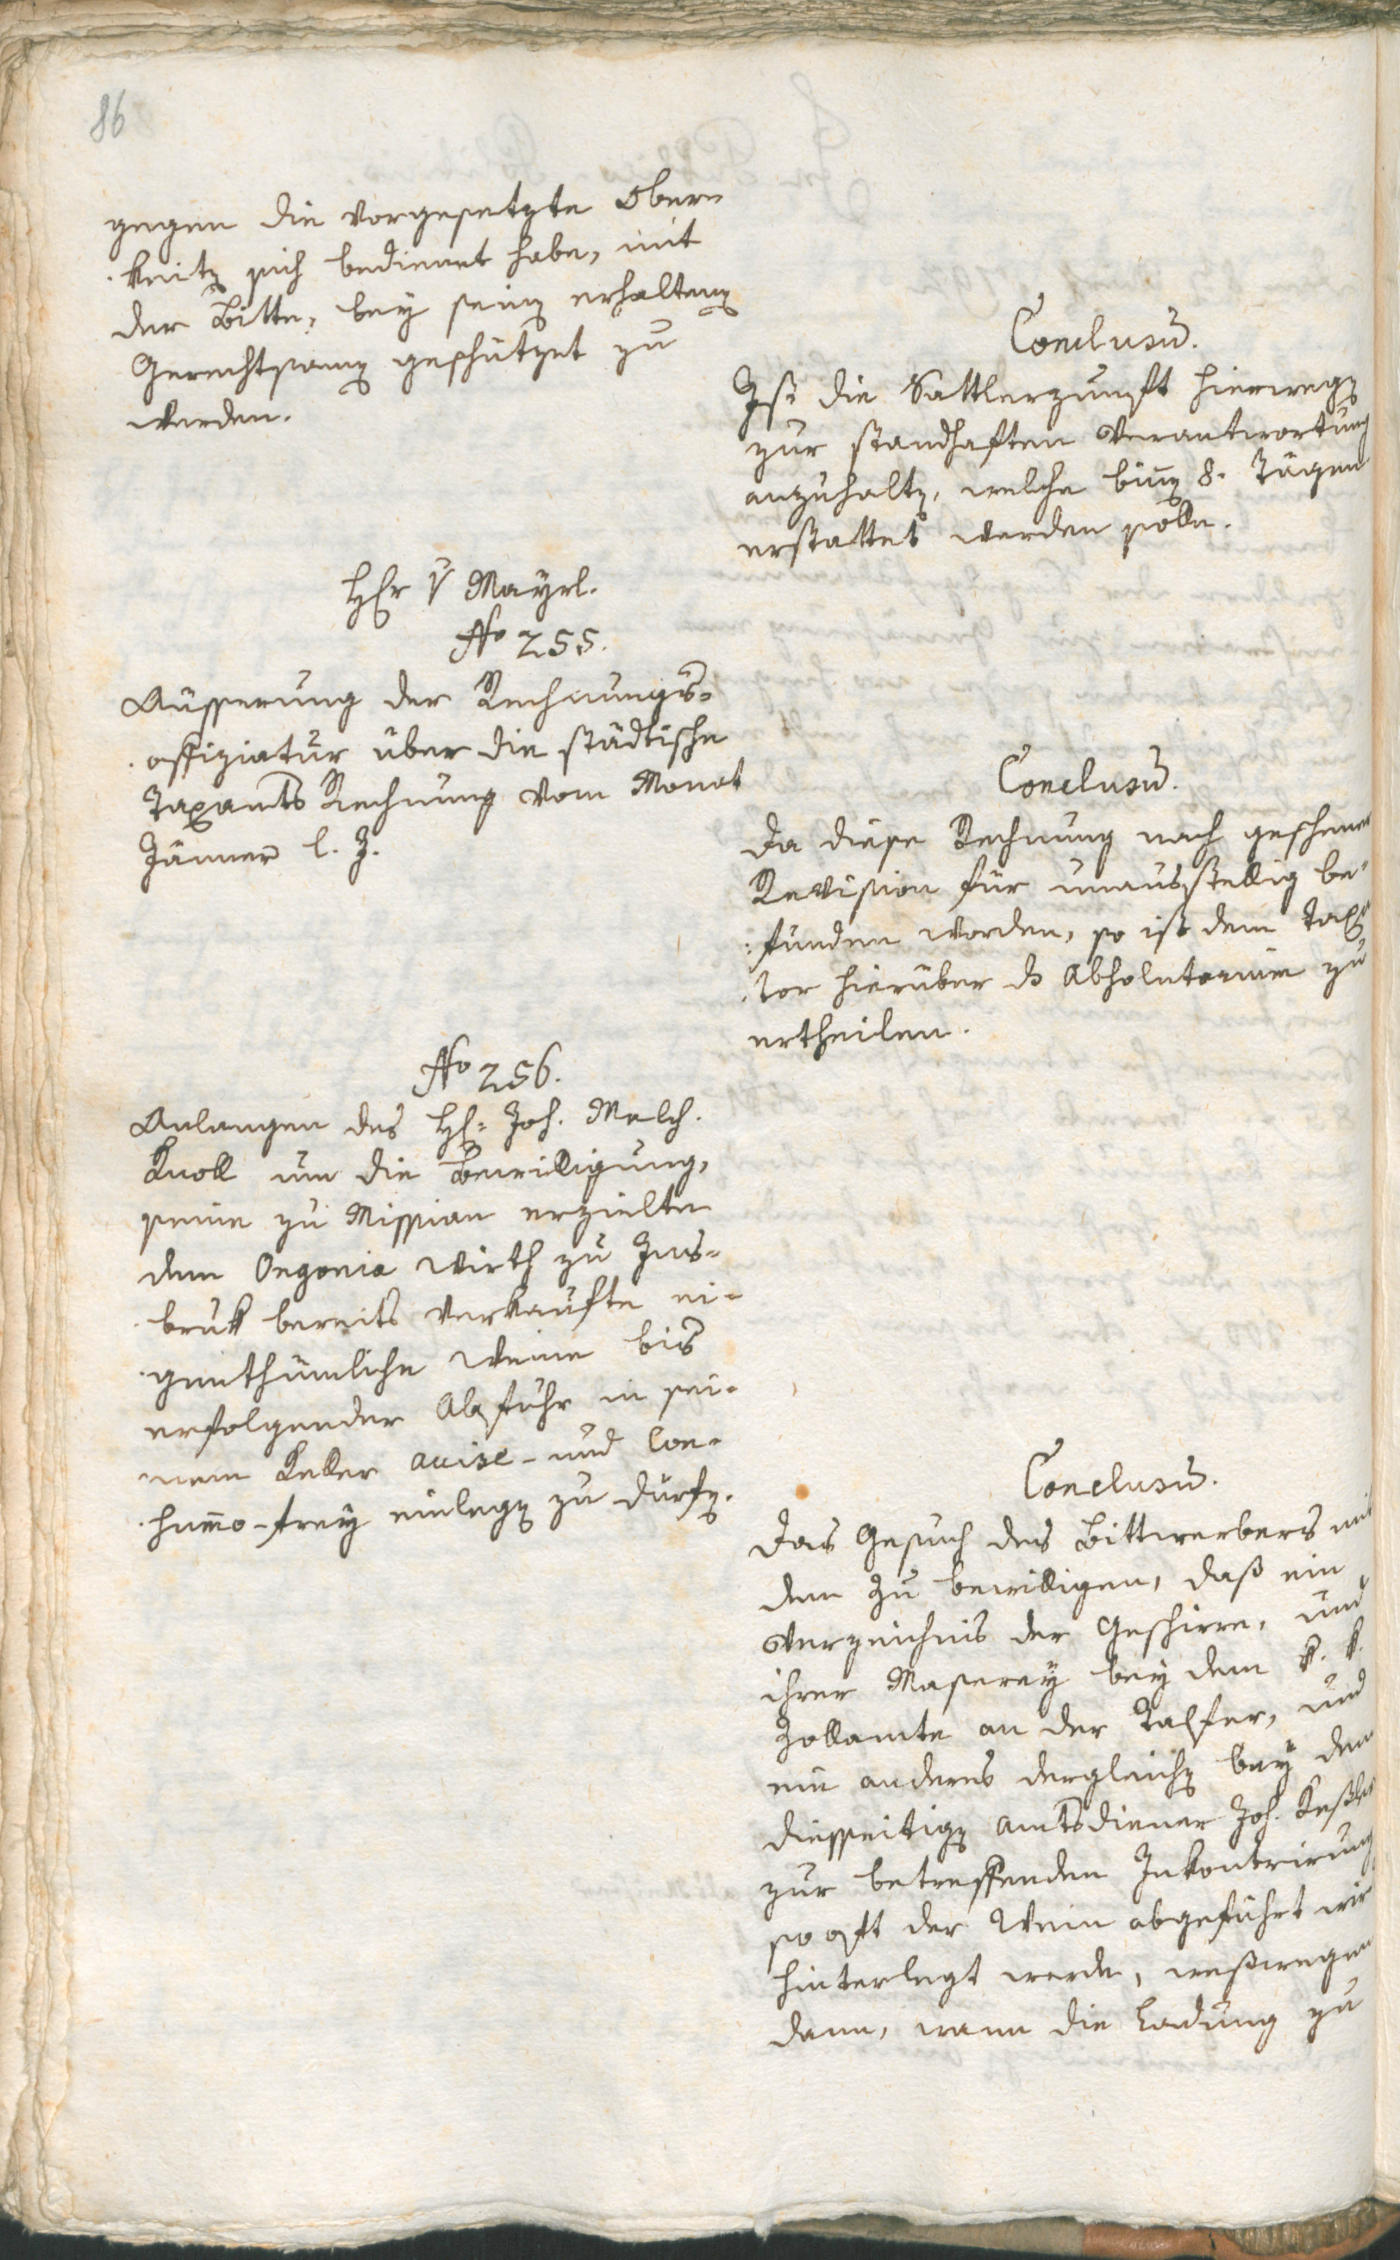 86
gegen die vorgesetzte Obern
keiten sich bedienet habe, mit
der Bitte, bey seinen erhaltenen
Gerechtsamen geschützet zu
werden.
Conclusum.
Ist die Sattlerzunft hierwegen
zur standhaften Verantwortung
anzuhalten, welche binnen 8. Tägen
erstattet werden solle.
Herr v Mayrl.
No 255.
Aüsserung der Rechnungs-
offiziatur über die städtische
Taxamts Rechnung vom Monat
Jänner l. J.
Conclusum.
Da diese Rechnung nach geschener
Revision für unausstellig be-
funden worden, so ist dem Taxa
tor hierüber das Absolutorium zu
ertheilen.
No 256.
Anlangen des H: Joh. Melch.
Knoll um die Bewilligung,
seine zu Missian erzielte
dem Ongania Wirth zu Ins-
bruk bereits verkaufte ei-
genthümliche Weine bis
erfolgender Abfuhr in sei-
nem Keller accise- und Con-
summo-frey einlegen zu dürfen.
Conclusum.
Das Gesuch des Bittwerbers mit
dem zu bewilligen, daß ein
Verzeichnis der Geschirre, und
ihrer Masserey bey dem k. k.
Zollamte an der Talfer, und
ein anderes dergleichen bey dem
diesseitigen Amtsdiener Joh. Keßler
zur betreffenden Inkontrirung
so oft der Wein abgeführt wird
hinterlegt werde, weßwegen
dann, wann die Ladung zu